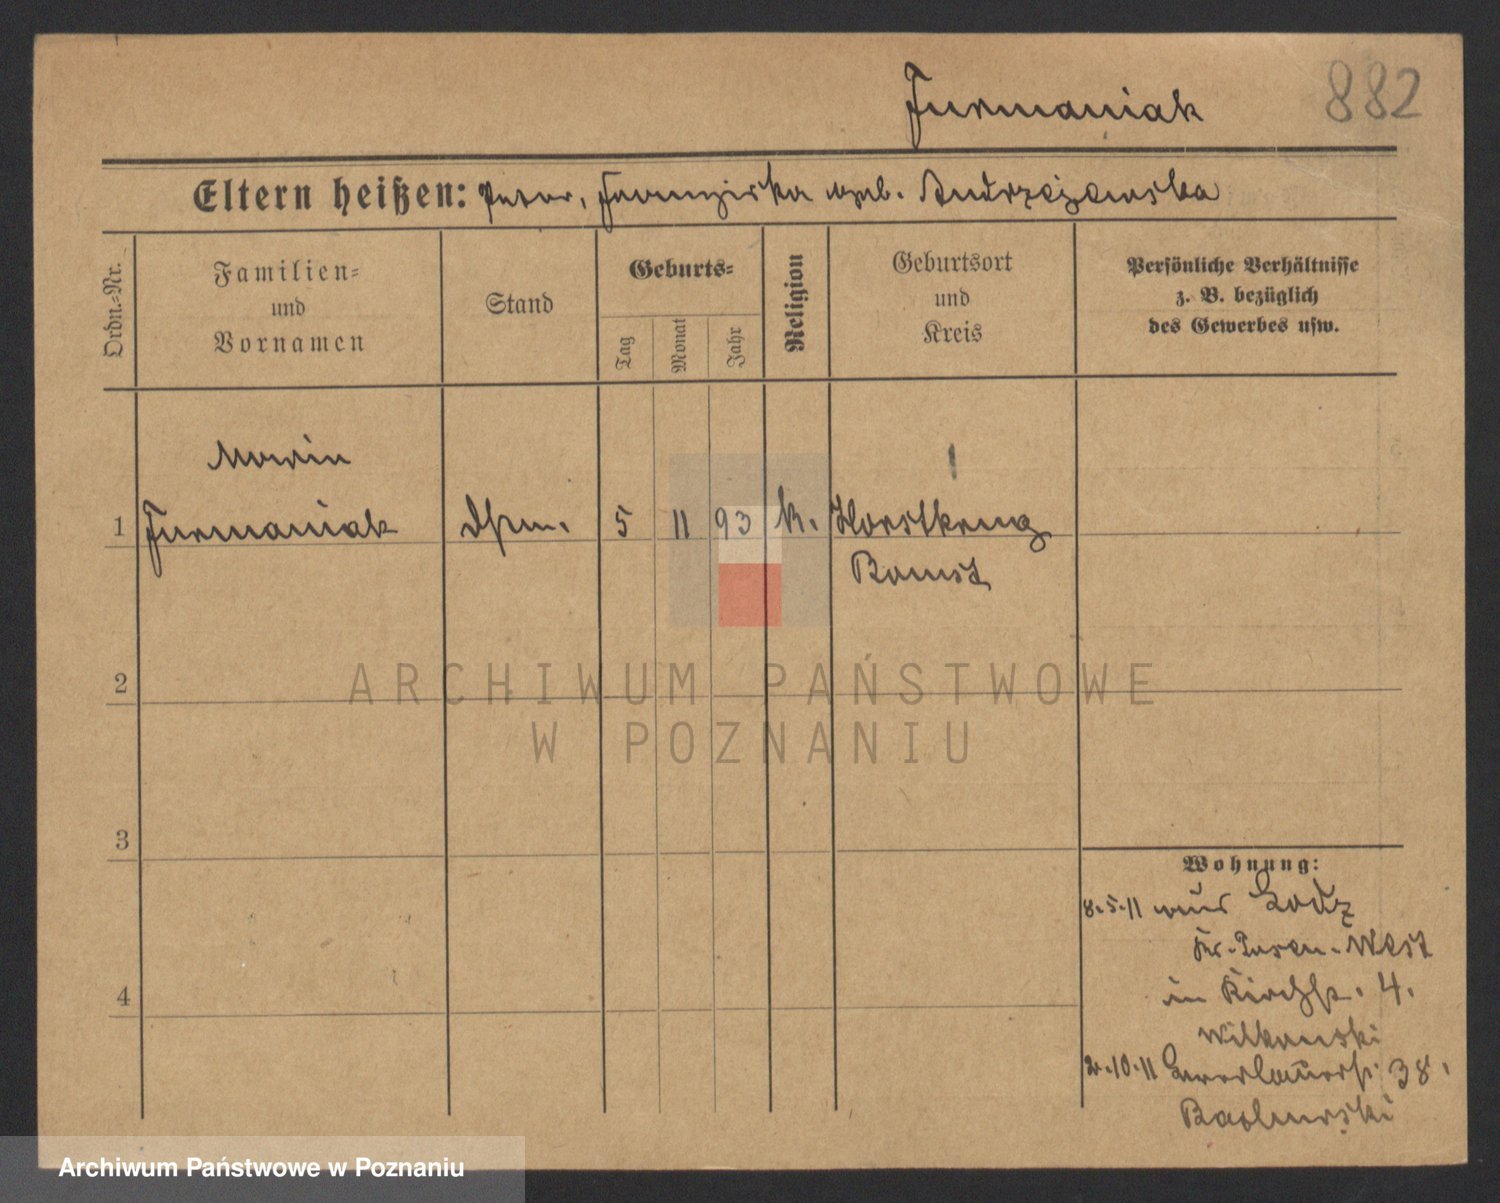 Furmaniak
882
Eltern heißen: Peter, Franziska geb. Andrzejewska
Ordn.-Nr.
Familien- und Vornamen
Stand
Geburts-
Tag
Monat
Jahr
Religion
Geburtsort und Kreis
Persönliche Verhältnisse z. B. bezüglich des Gewerbes usw.
Maria
1 Furmaniak
5 11 93 k. Horstkrug
Bomst
2
3
4
Wohnung:
8.5.11 aus Lodz
Kr. Posen-West
in Kirchstr. 4.
Wilkanski
10.11 38.
ARCHIWUM PAŃSTWOWE
W POZNANIU
Archiwum Państwowe w Poznaniu